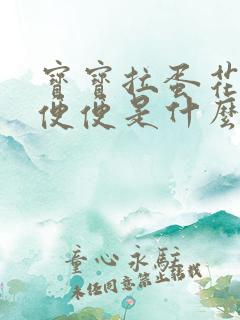 寶寶拉蛋花
便便是什麼
童心永駐
未经同意禁止转载